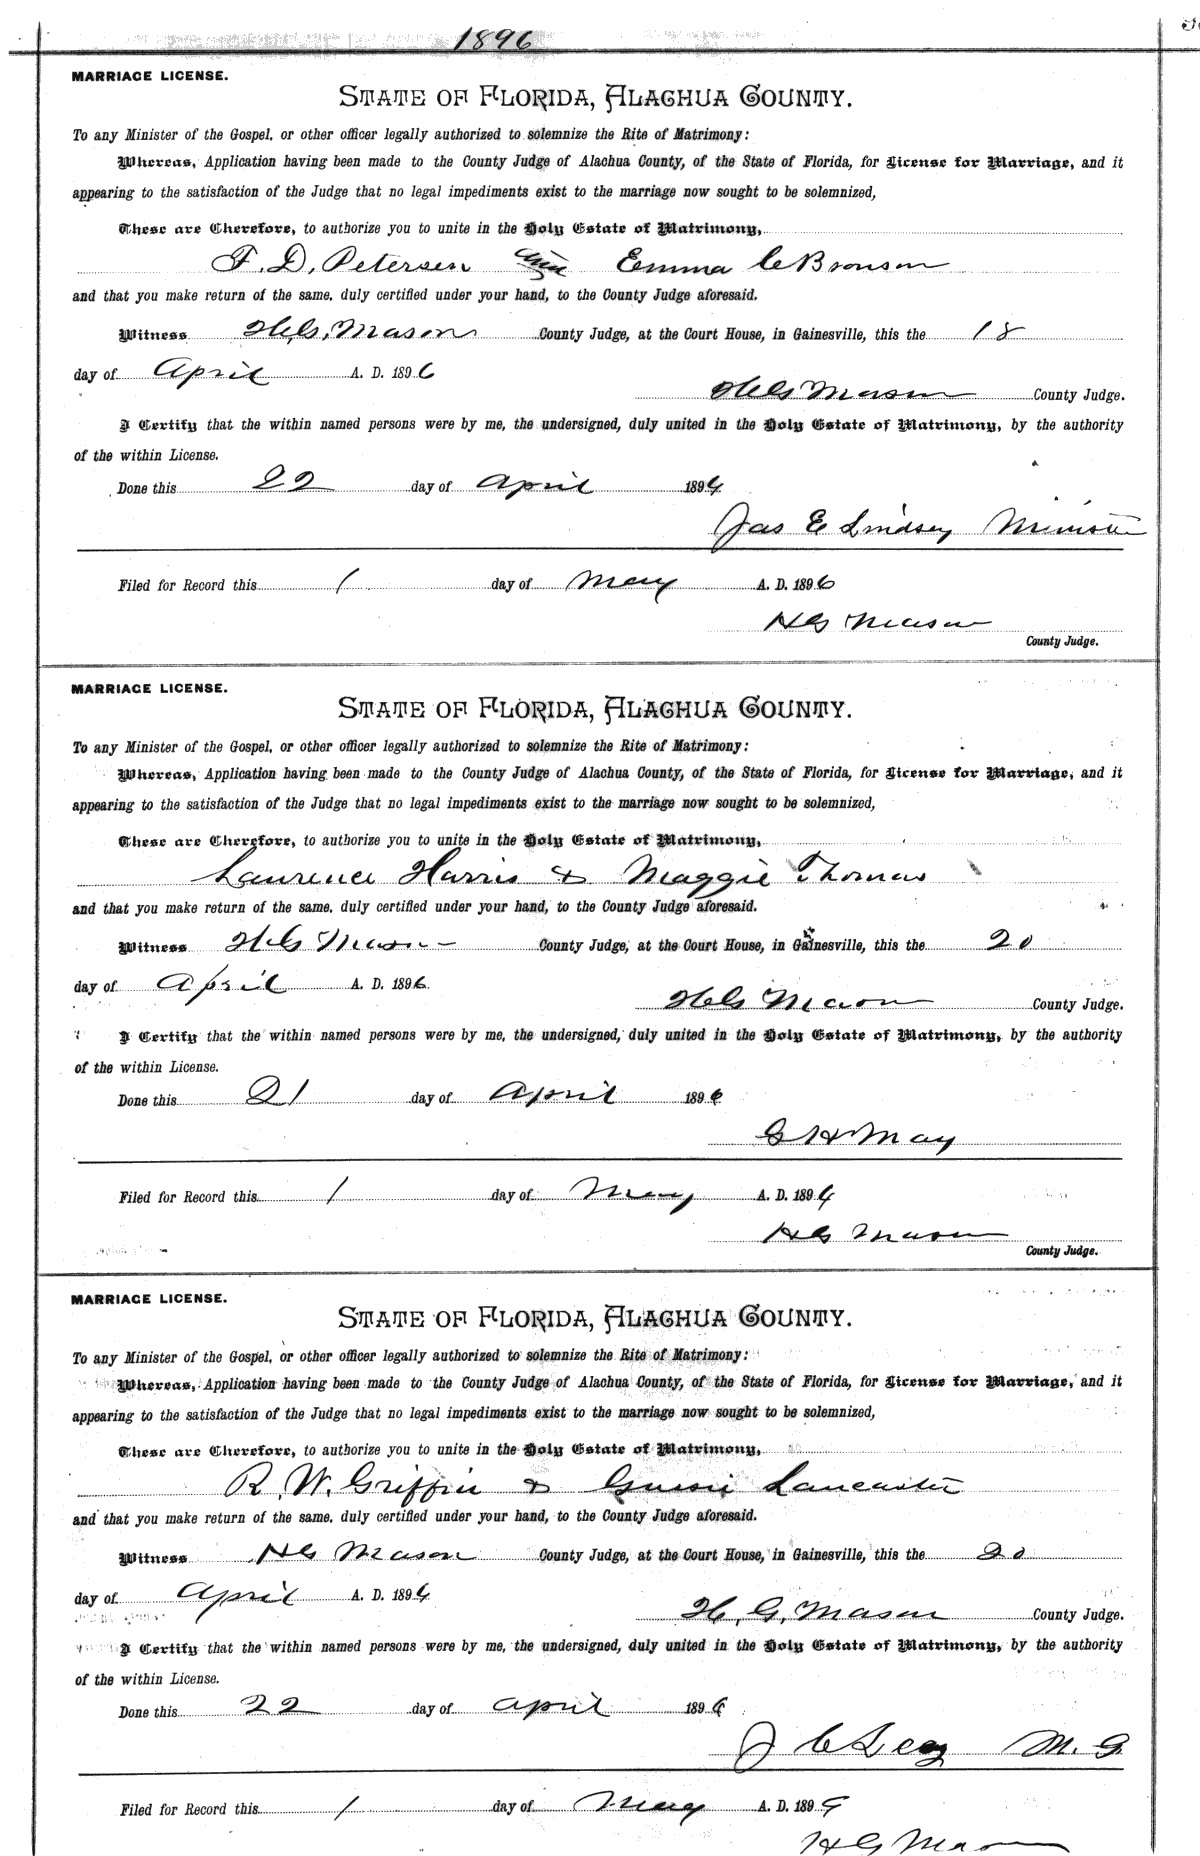 1896
MARRIAGE LICENSE.
STATE OF FLORIDA, ALACHUA COUNTY.
To any Minister of the Gospel, or other officer legally authorized to solemnize the Rite of Matrimony:
Whereas, Application having been made to the County Judge of Alachua County, of the State of Florida, for License for Marriage, and it
appearing to the satisfaction of the Judge that no legal impediments exist to the marriage now sought to be solemnized,
These are Therefore, to authorize you to unite in the Holy Estate of Matrimony,
F. D. Petersen Emma C Bronson
and that you make return of the same, duly certified under your hand, to the County Judge aforesaid.
Witness H. G. Mason County Judge, at the Court House, in Gainesville, this the 18
day of April A. D. 1896
H G Mason County Judge.
I Certify that the within named persons were by me, the undersigned, duly united in the Holy Estate of Matrimony, by the authority
of the within License.
Done this 22 day of April 1896
Jas E Lindsey Minister
Filed for Record this 1 day of May A. D. 1896
H G Mason
County Judge.
MARRIAGE LICENSE.
STATE OF FLORIDA, ALACHUA COUNTY.
To any Minister of the Gospel, or other officer legally authorized to solemnize the Rite of Matrimony:
Whereas, Application having been made to the County Judge of Alachua County, of the State of Florida, for License for Marriage, and it
appearing to the satisfaction of the Judge that no legal impediments exist to the marriage now sought to be solemnized,
These are Therefore, to authorize you to unite in the Holy Estate of Matrimony,
Laurence Harris & Maggie Thomas
and that you make return of the same, duly certified under your hand, to the County Judge aforesaid.
Witness H G Mason County Judge, at the Court House, in Gainesville, this the 20
day of April A. D. 1896
H G Mason County Judge.
I Certify that the within named persons were by me, the undersigned, duly united in the Holy Estate of Matrimony, by the authority
of the within License.
Done this 21 day of April 1896
G H May
Filed for Record this 1 day of May A. D. 1896
H G Mason
County Judge.
MARRIAGE LICENSE.
STATE OF FLORIDA, ALACHUA COUNTY.
To any Minister of the Gospel, or other officer legally authorized to solemnize the Rite of Matrimony:
Whereas, Application having been made to the County Judge of Alachua County, of the State of Florida, for License for Marriage, and it
appearing to the satisfaction of the Judge that no legal impediments exist to the marriage now sought to be solemnized,
These are Therefore, to authorize you to unite in the Holy Estate of Matrimony,
R. W. Griffin & Gussie Lancaster
and that you make return of the same, duly certified under your hand, to the County Judge aforesaid.
Witness H G Mason County Judge, at the Court House, in Gainesville, this the 20
day of April A. D. 1896
H. G. Mason County Judge.
I Certify that the within named persons were by me, the undersigned, duly united in the Holy Estate of Matrimony, by the authority
of the within License.
Done this 22 day of April 1896
J C M. G.
Filed for Record this 1 day of May A. D. 1896
H G Mason